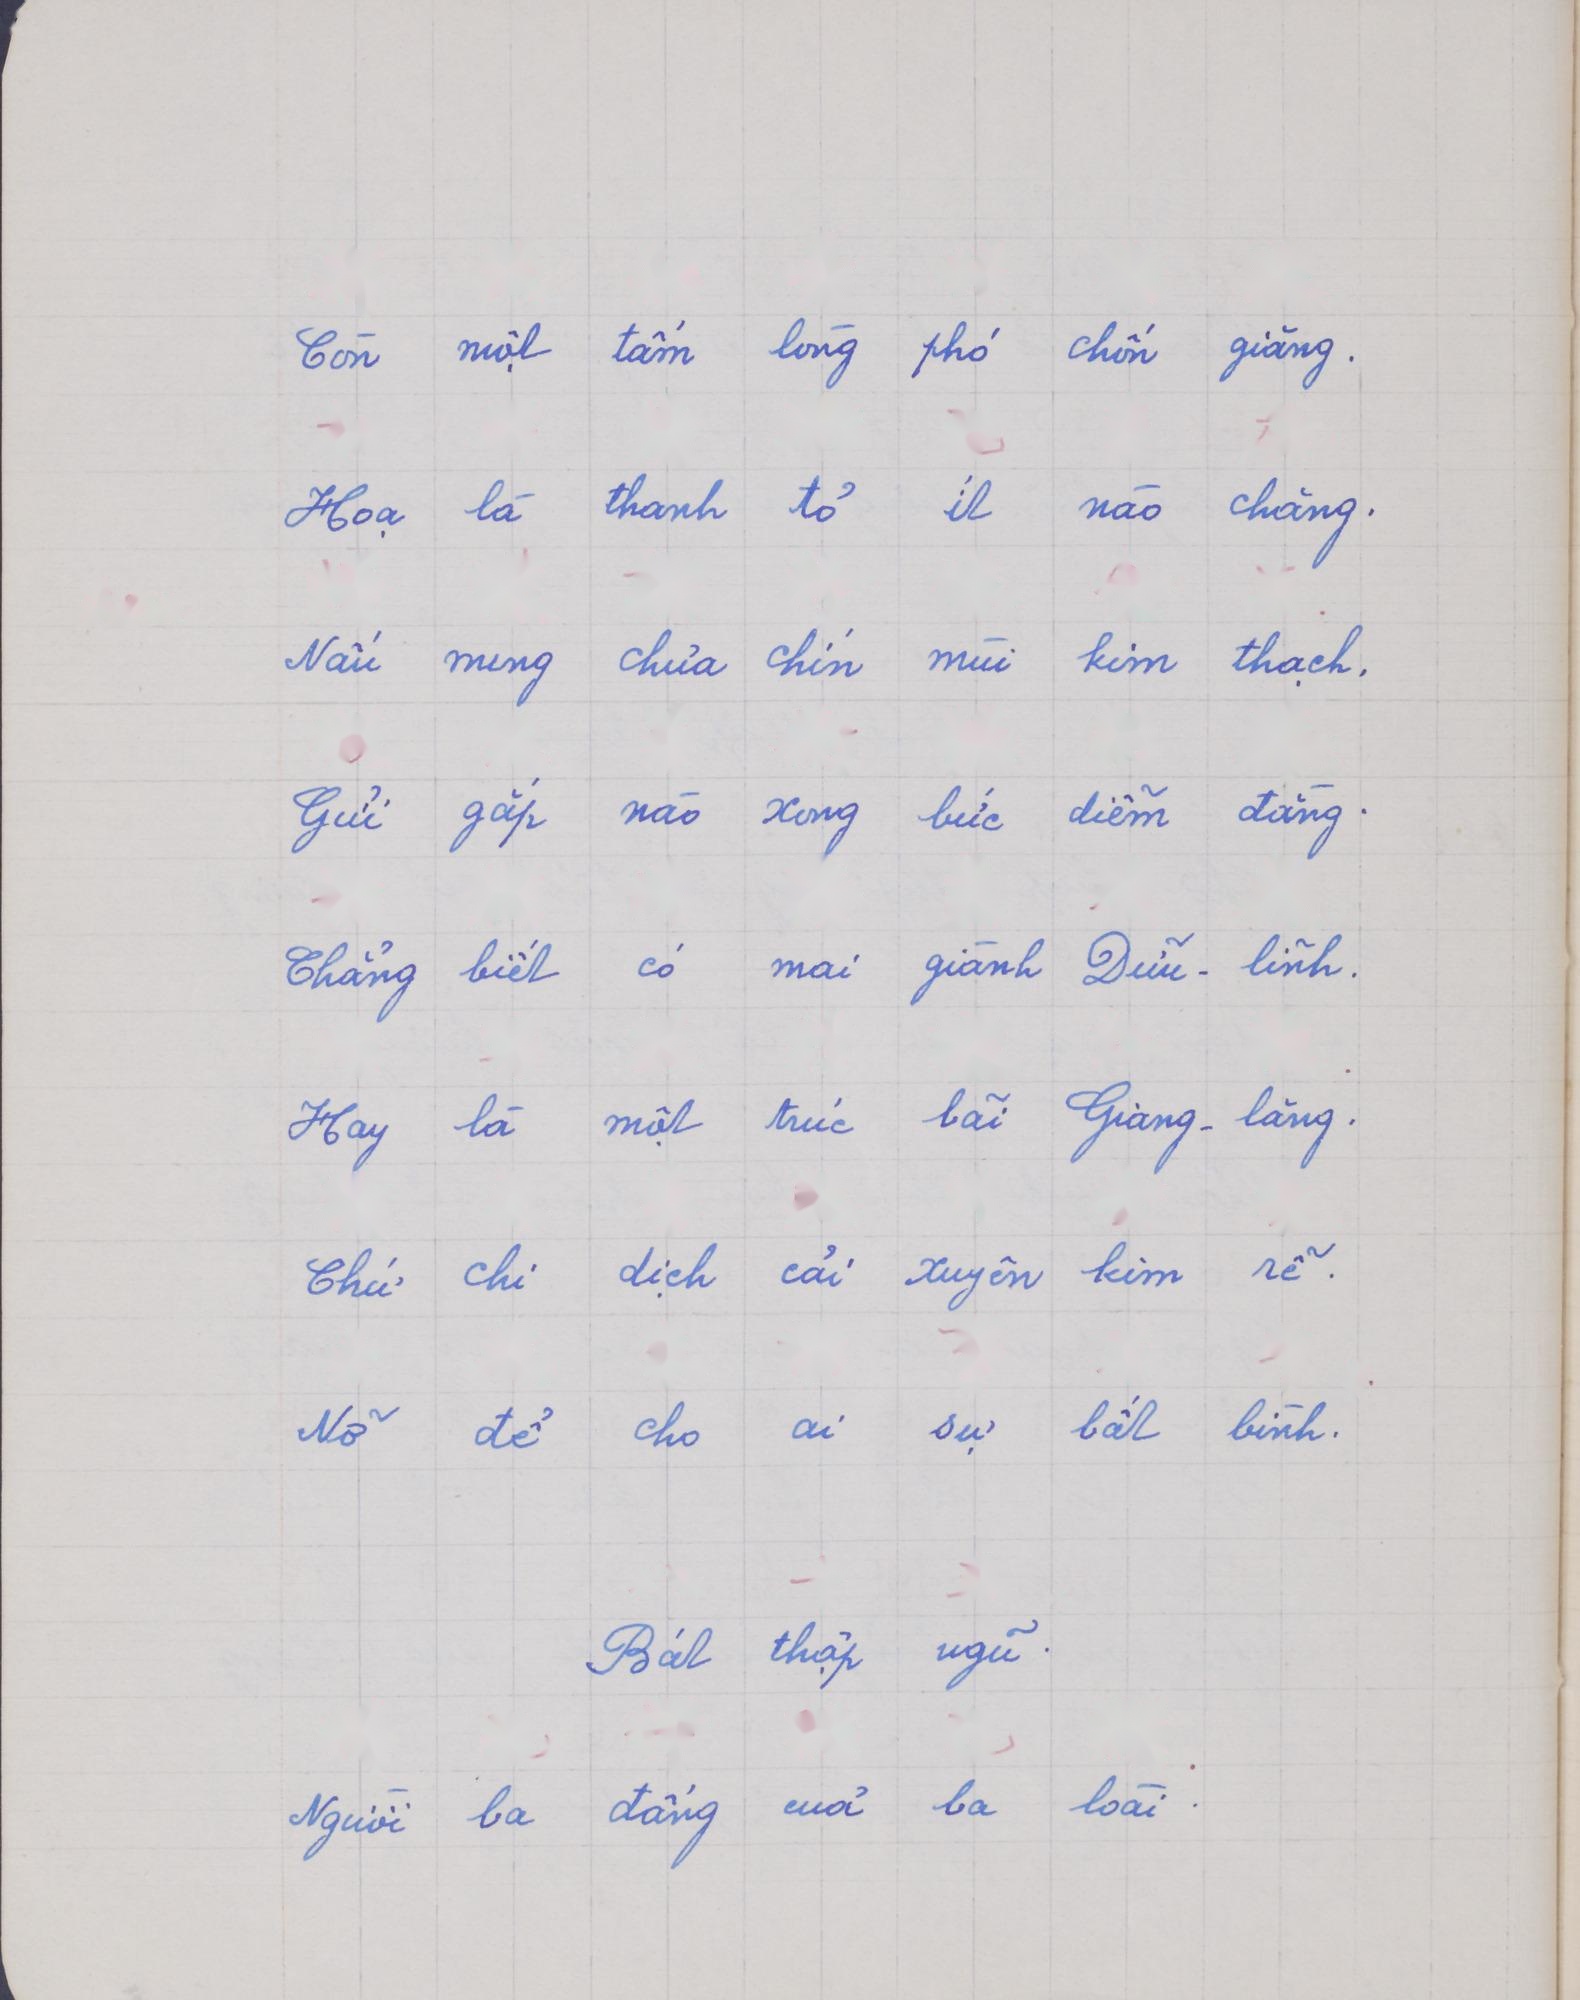 Còn một tấm lòng phó chốn giăng.
Hoạ là thanh tỏ ít nào chăng.
Nấu nung chửa chín mùi kim thạch.
Gửi gắp nào xong bức diễm đằng.
Chẳng biết có mai giành Dữu - lĩnh.
Hay là một trúc bãi Giang - lăng.
Chứ chi dịch cải xuyên kim rễ.
Nỡ để cho ai sự bất bình.
Bát thập ngũ.
Người ba đấng của ba loài.